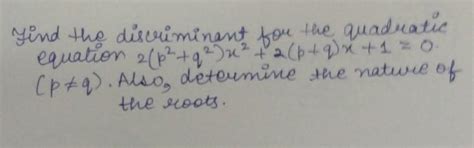 Find the discriminant for the quadratic
equation 2(p²+q²)x² + 2(p+q)x + 1 = 0.
(p≠q). Also, determine the nature of
the roots.